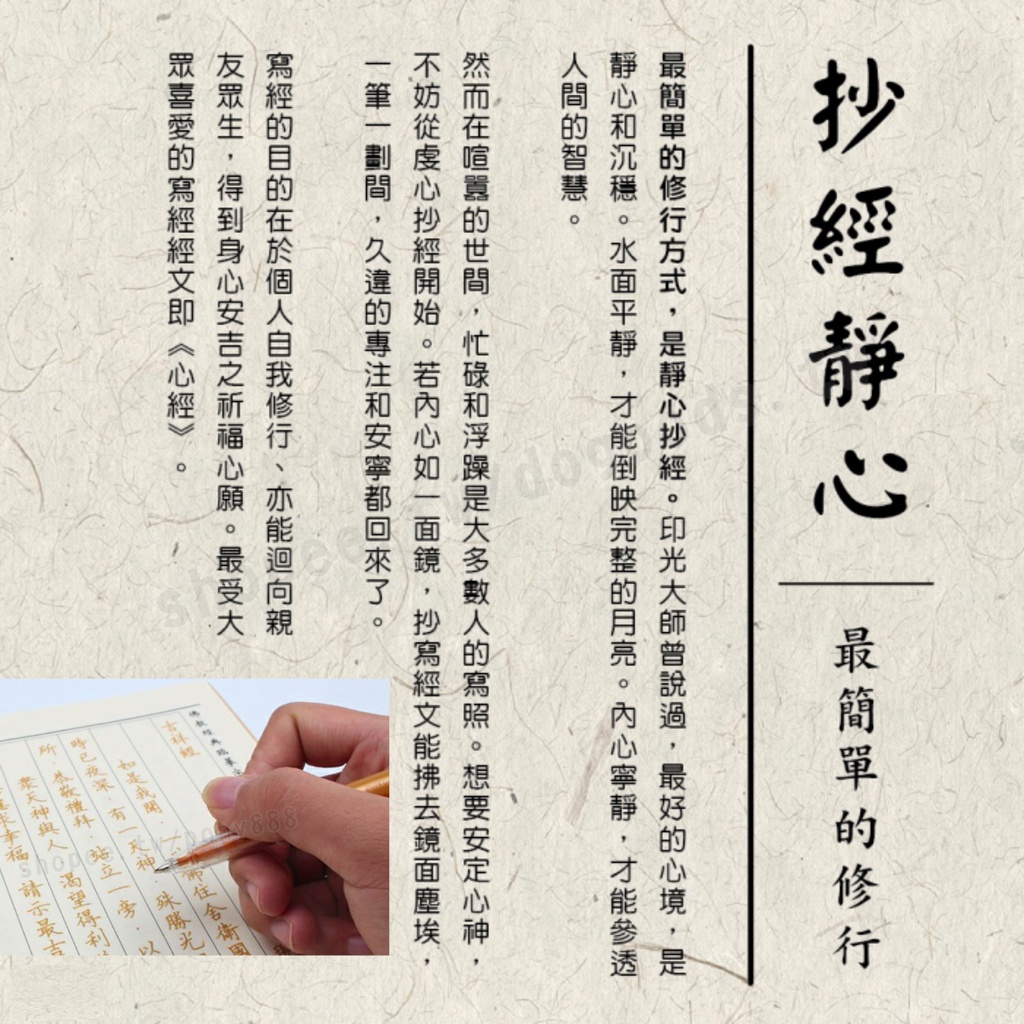 抄經靜心
最簡單的修行
最簡單的修行方式，是靜心抄經。印光大師曾說過，最好的心境，是
靜心和沉穩。水面平靜，才能倒映完整的月亮。內心寧靜，才能參透
人間的智慧。
然而在喧囂的世間，忙碌和浮躁是大多數人的寫照。想要安定心神，
不妨從虔心抄經開始。若內心如一面鏡，抄寫經文能拂去鏡面塵埃，
一筆一劃間，久違的專注和安寧都回來了。
寫經的目的在於個人自我修行、亦能迴向親
友眾生，得到身心安吉之祈福心願。最受大
眾喜愛的寫經經文即《心經》。
吉祥經
如是我聞
佛住舍衛國
時已夜深，有一天神
殊勝光
所，恭敬禮拜，站立一旁，以
眾天神與人，渴望得利
幸福，請示最吉